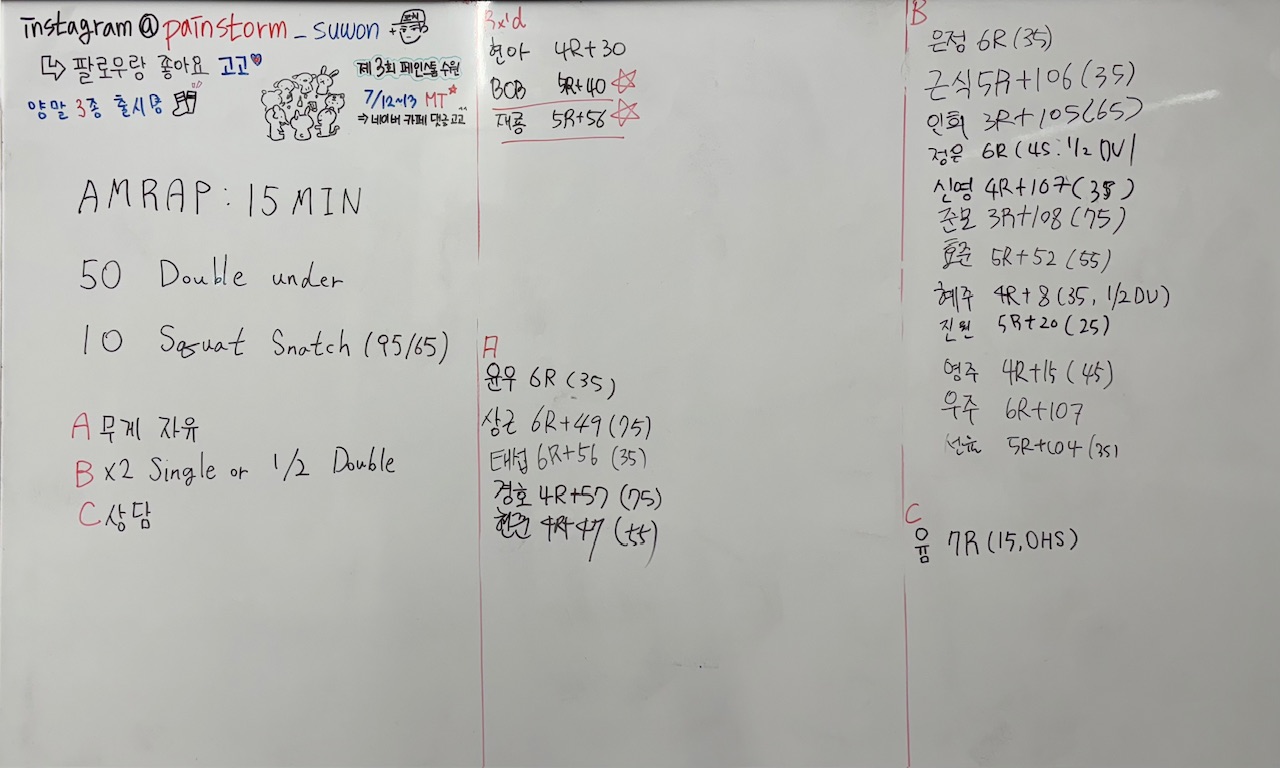 instagram@painstorm_suwon
팔로우랑 좋아요 고고
양말 3종 출시중
제3회 페인스톰 수원
7/12~13 MT
⇒ 네이버 카페 댓글 고고
AMRAP : 15 MIN
50 Double under
10 Squat Snatch (95/65)
A 무게 자유
B x2 Single or 1/2 Double
C 상담
Rx'd
현아 4R+30
BOB 5R+40
재룡 5R+56
A
윤우 6R (35)
상근 6R+49 (75)
태섭 6R+56 (35)
경호 4R+57 (75)
4R+47 (55)
B
은정 6R (35)
근식 5R+106 (35)
인희 3R+105 (65)
정은 6R (45. 1/2 DU)
신영 4R+107 (35)
준모 3R+108 (75)
효준 5R+52 (55)
혜주 4R+8 (35, 1/2 DU)
진원 5R+20 (25)
영주 4R+15 (45)
우주 6R+107
선율 5R+104 (35)
C
윰 7R (15, OHS)